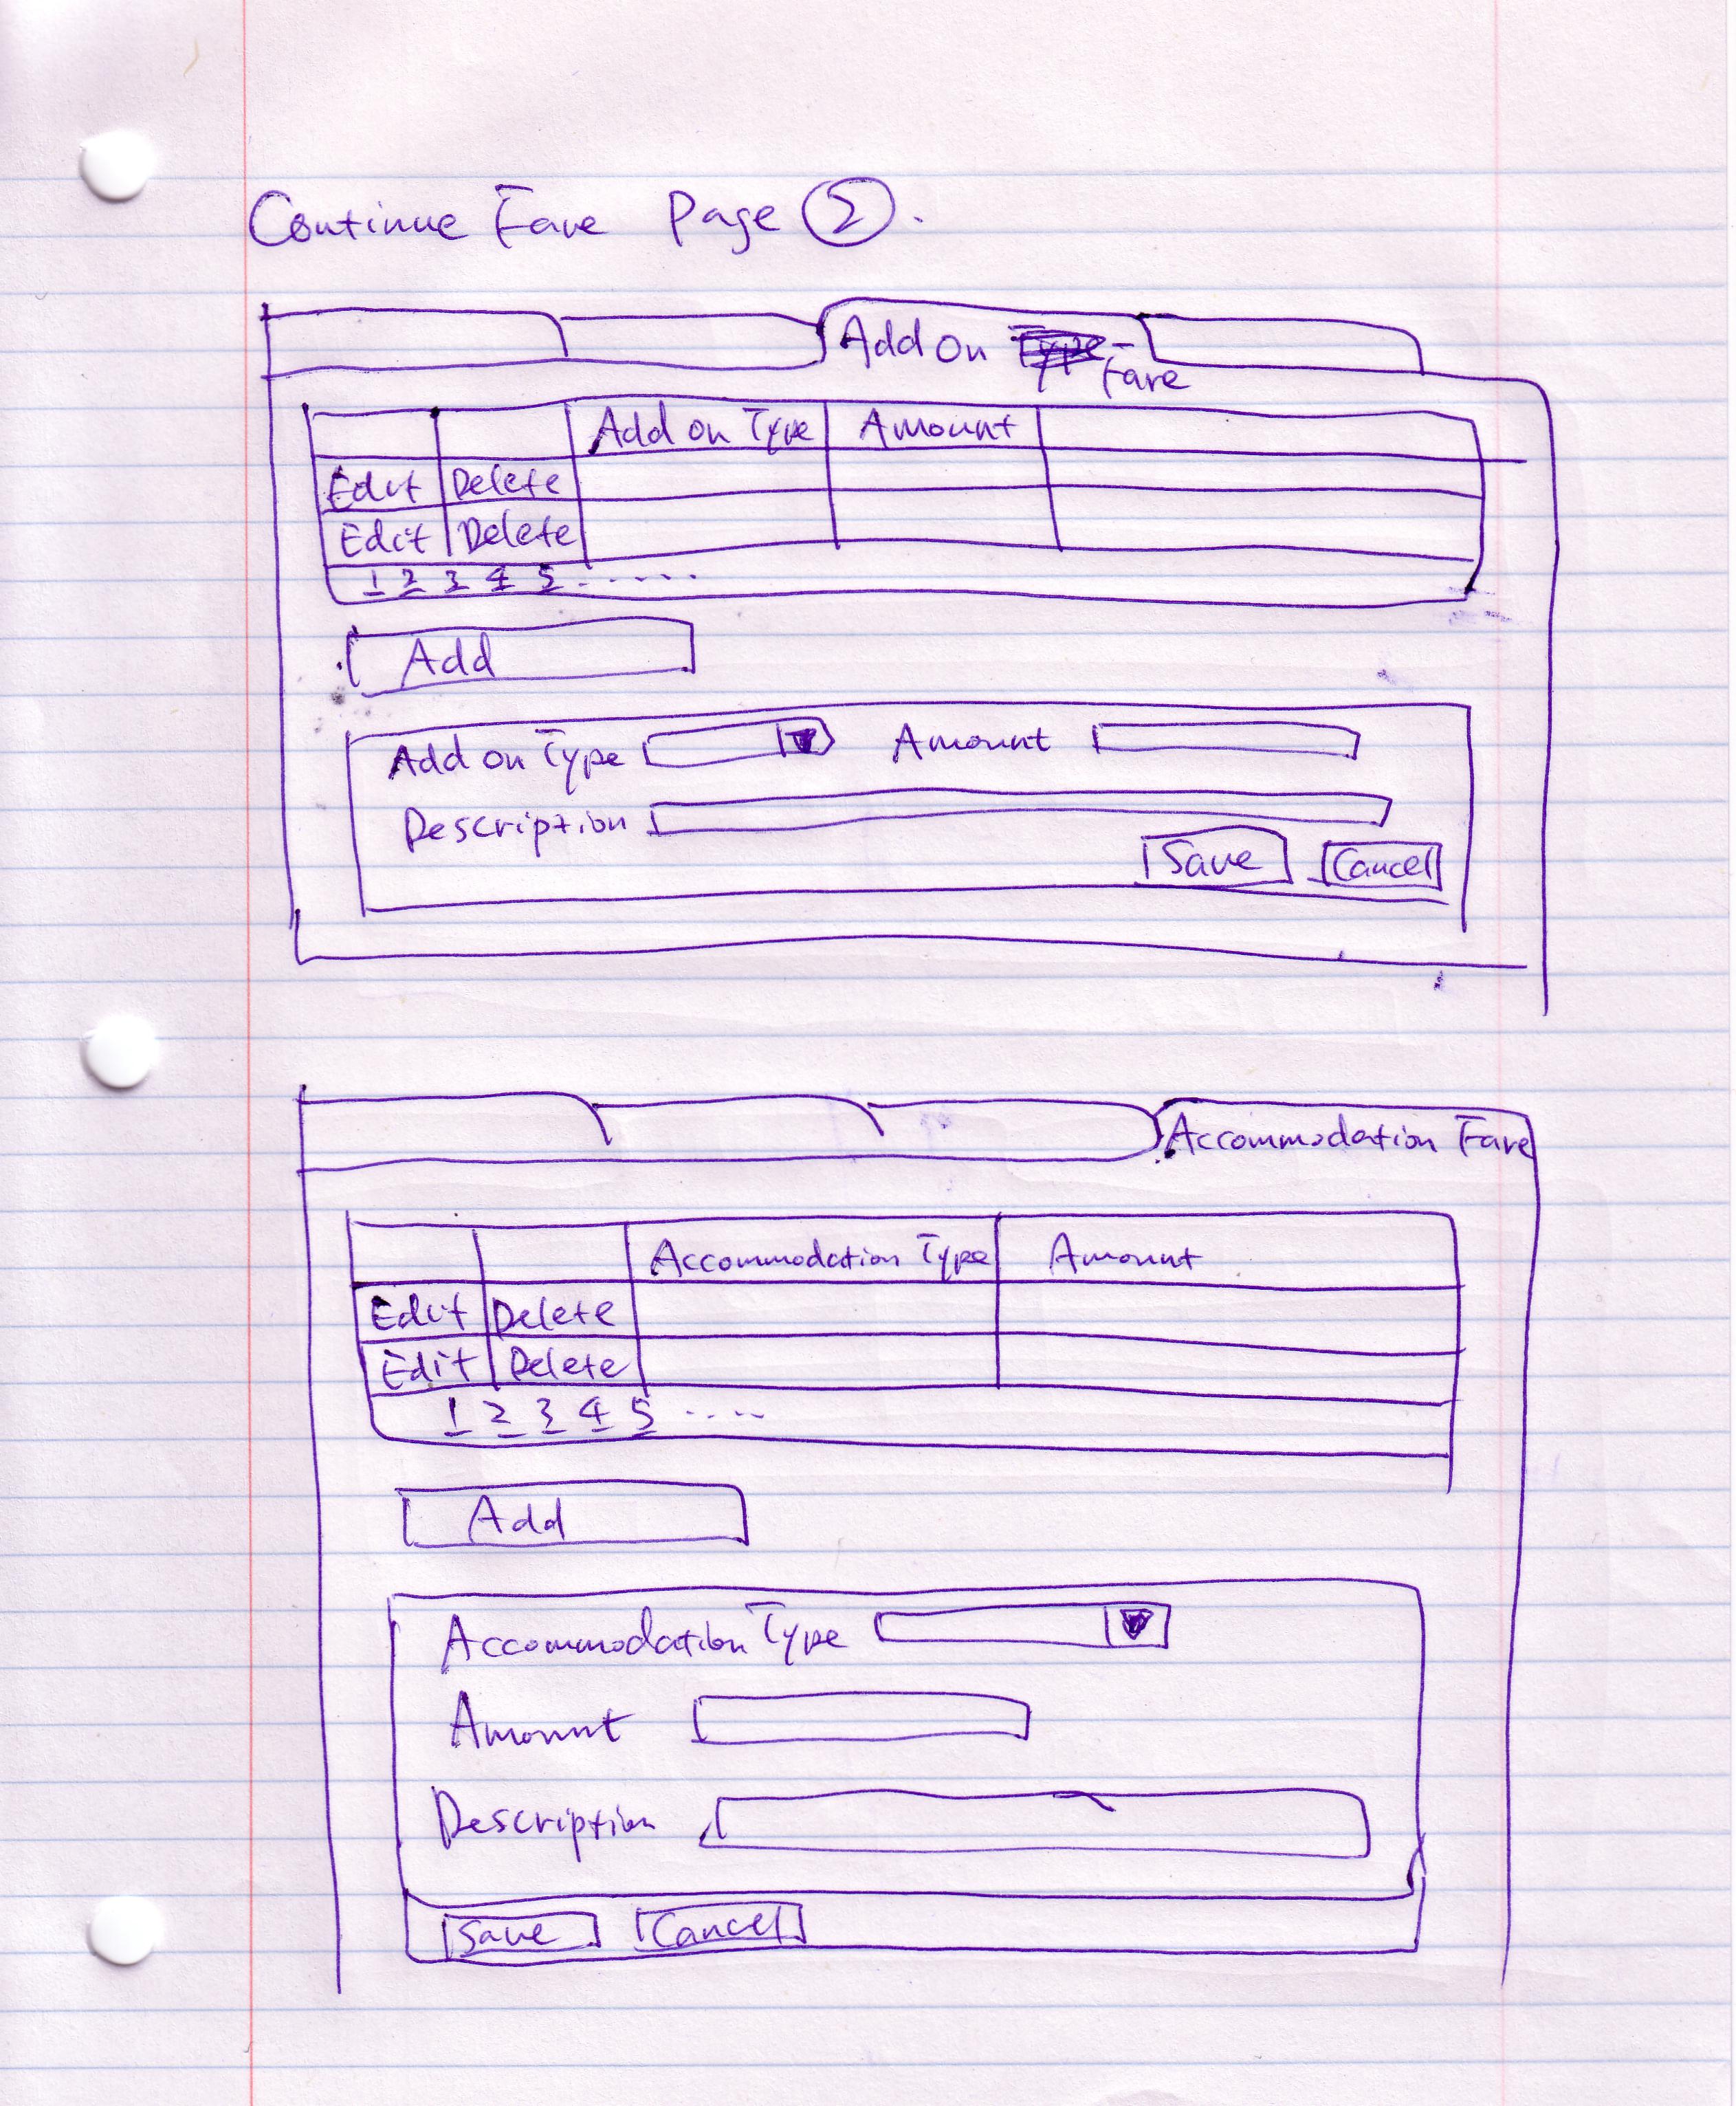 Continue Fare Page 2.
Add On Type Fare
Add on Type Amount
Edit Delete
Edit Delete
1 2 3 4 5 ......
Add
Add on Type Amount
Description
Save Cancel
Accommodation Fare
Accommodation Type Amount
Edit Delete
Edit Delete
1 2 3 4 5 ....
Add
Accommodation Type
Amount
Description
Save Cancel